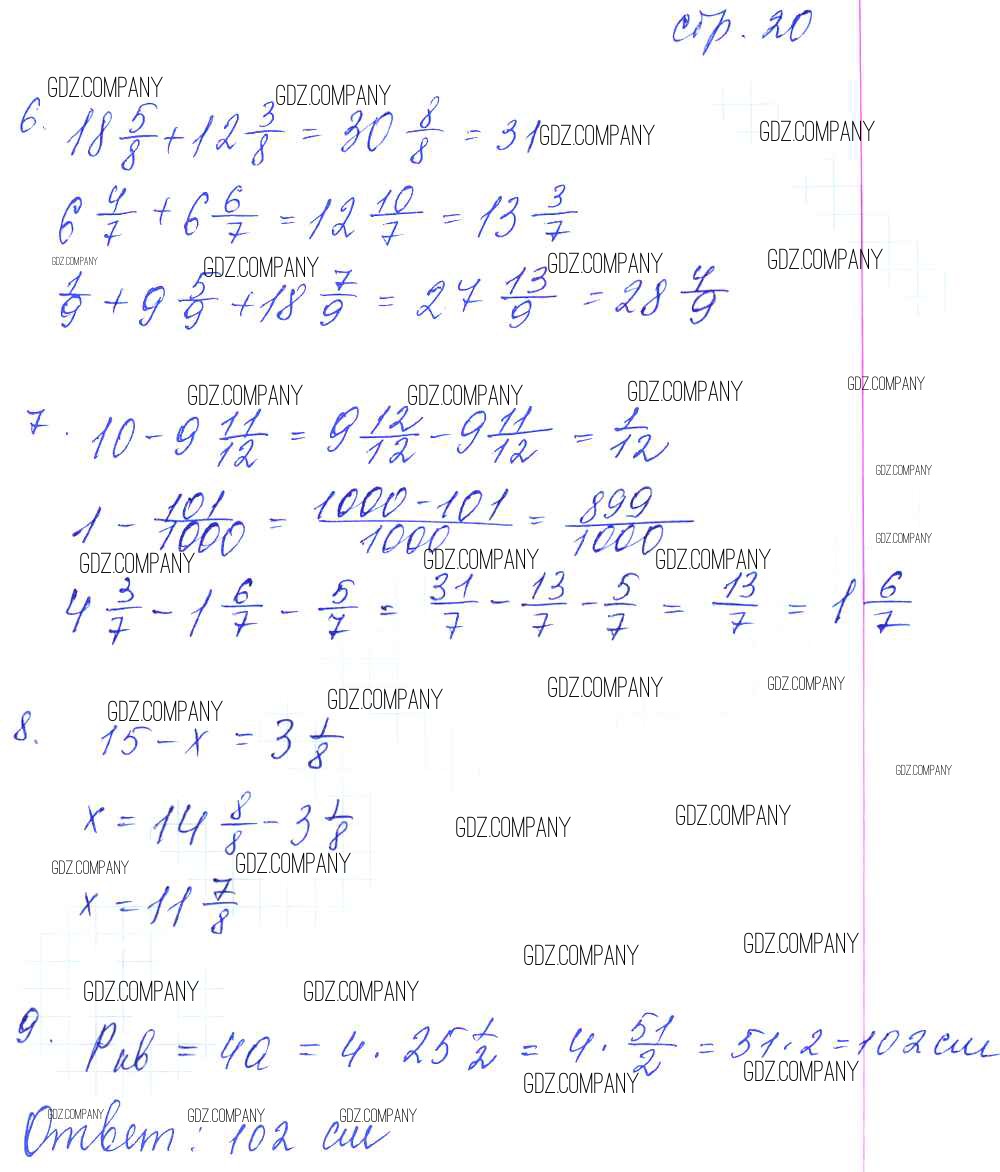 стр. 20
GDZ.COMPANY GDZ.COMPANY
6. 18 5/8 + 12 3/8 = 30 8/8 = 31 GDZ.COMPANY GDZ.COMPANY
6 4/7 + 6 6/7 = 12 10/7 = 13 3/7
GDZ.COMPANY GDZ.COMPANY GDZ.COMPANY GDZ.COMPANY
1/9 + 9 5/9 + 18 7/9 = 27 13/9 = 28 4/9
GDZ.COMPANY GDZ.COMPANY GDZ.COMPANY GDZ.COMPANY
7. 10 - 9 11/12 = 9 12/12 - 9 11/12 = 1/12
GDZ.COMPANY
1 - 101/1000 = 1000 - 101/1000 = 899/1000
GDZ.COMPANY
GDZ.COMPANY GDZ.COMPANY GDZ.COMPANY
4 3/7 - 1 6/7 - 5/7 = 31/7 - 13/7 - 5/7 = 13/7 = 1 6/7
GDZ.COMPANY GDZ.COMPANY GDZ.COMPANY GDZ.COMPANY
8. 15 - x = 3 1/8
GDZ.COMPANY
x = 14 8/8 - 3 1/8
GDZ.COMPANY GDZ.COMPANY
GDZ.COMPANY GDZ.COMPANY
x = 11 7/8
GDZ.COMPANY GDZ.COMPANY
GDZ.COMPANY GDZ.COMPANY
9. Pкв = 4a = 4 · 25 1/2 = 4 · 51/2 = 51 · 2 = 102 см
GDZ.COMPANY GDZ.COMPANY
GDZ.COMPANY GDZ.COMPANY GDZ.COMPANY
Ответ: 102 см